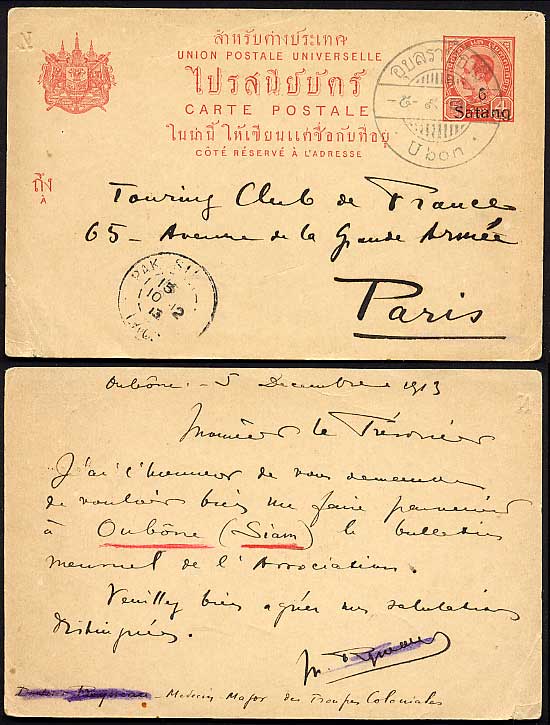 สำหรับต่างประเทศ
UNION POSTALE UNIVERSELLE
ไปรสนียบัตร์
CARTE POSTALE
ในน่านี้ ให้เขียนแต่ชื่อกับที่อยู่
CÔTÉ RÉSERVÉ À L'ADRESSE
6
Satang
Ubon
ถึง
A
Touring Club de France
65 - Avenue de la Grande Armée
Paris
PAK
15
10-12
13
Oubône - 5 Decembre 1913
Monsieur le Trésorier
J'ai l'honneur de vous demander
de vouloir bien me faire parvenir
à Oubône (Siam) le bulletin
mensuel de l'Association.
Veuillez bien agréer mes salutations
distinguées.
Medecin-Major des Troupes Coloniales